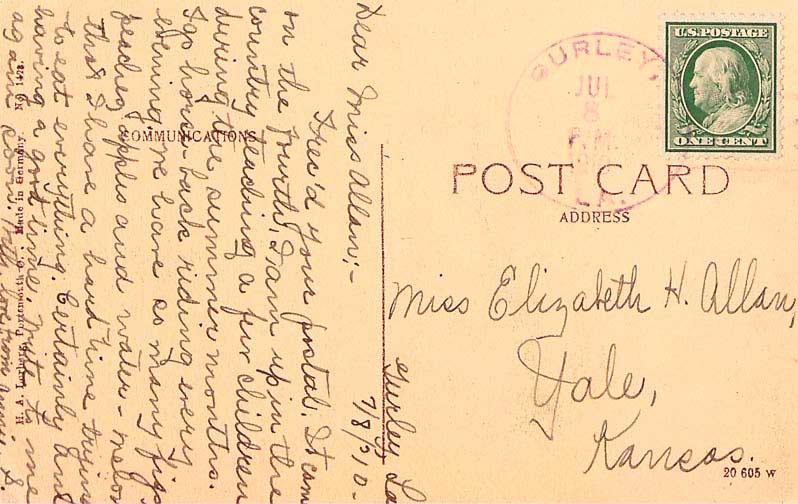 Gurley La
7/8/'10-
Dear Miss Allan;-
I rec'd your postal. It came
on the Fourth. I am up in the
country teaching a few children
during the summer months.
I go horse-back riding every
evening. We have so many figs
peaches apples and water-melons
that I have a hard time trying
to eat everything. Certainly am
having a good time. Write to me
again soon. With love from Annie S.
COMMUNICATIONS
H. A. Portsmouth, O. Made in Germany. No.
GURLEY,
JUL
8
P.M.
LA.
U.S. POSTAGE
ONE CENT
POST CARD
ADDRESS
Miss Elizabeth H. Allan,
Yale,
Kansas.
20 605 W